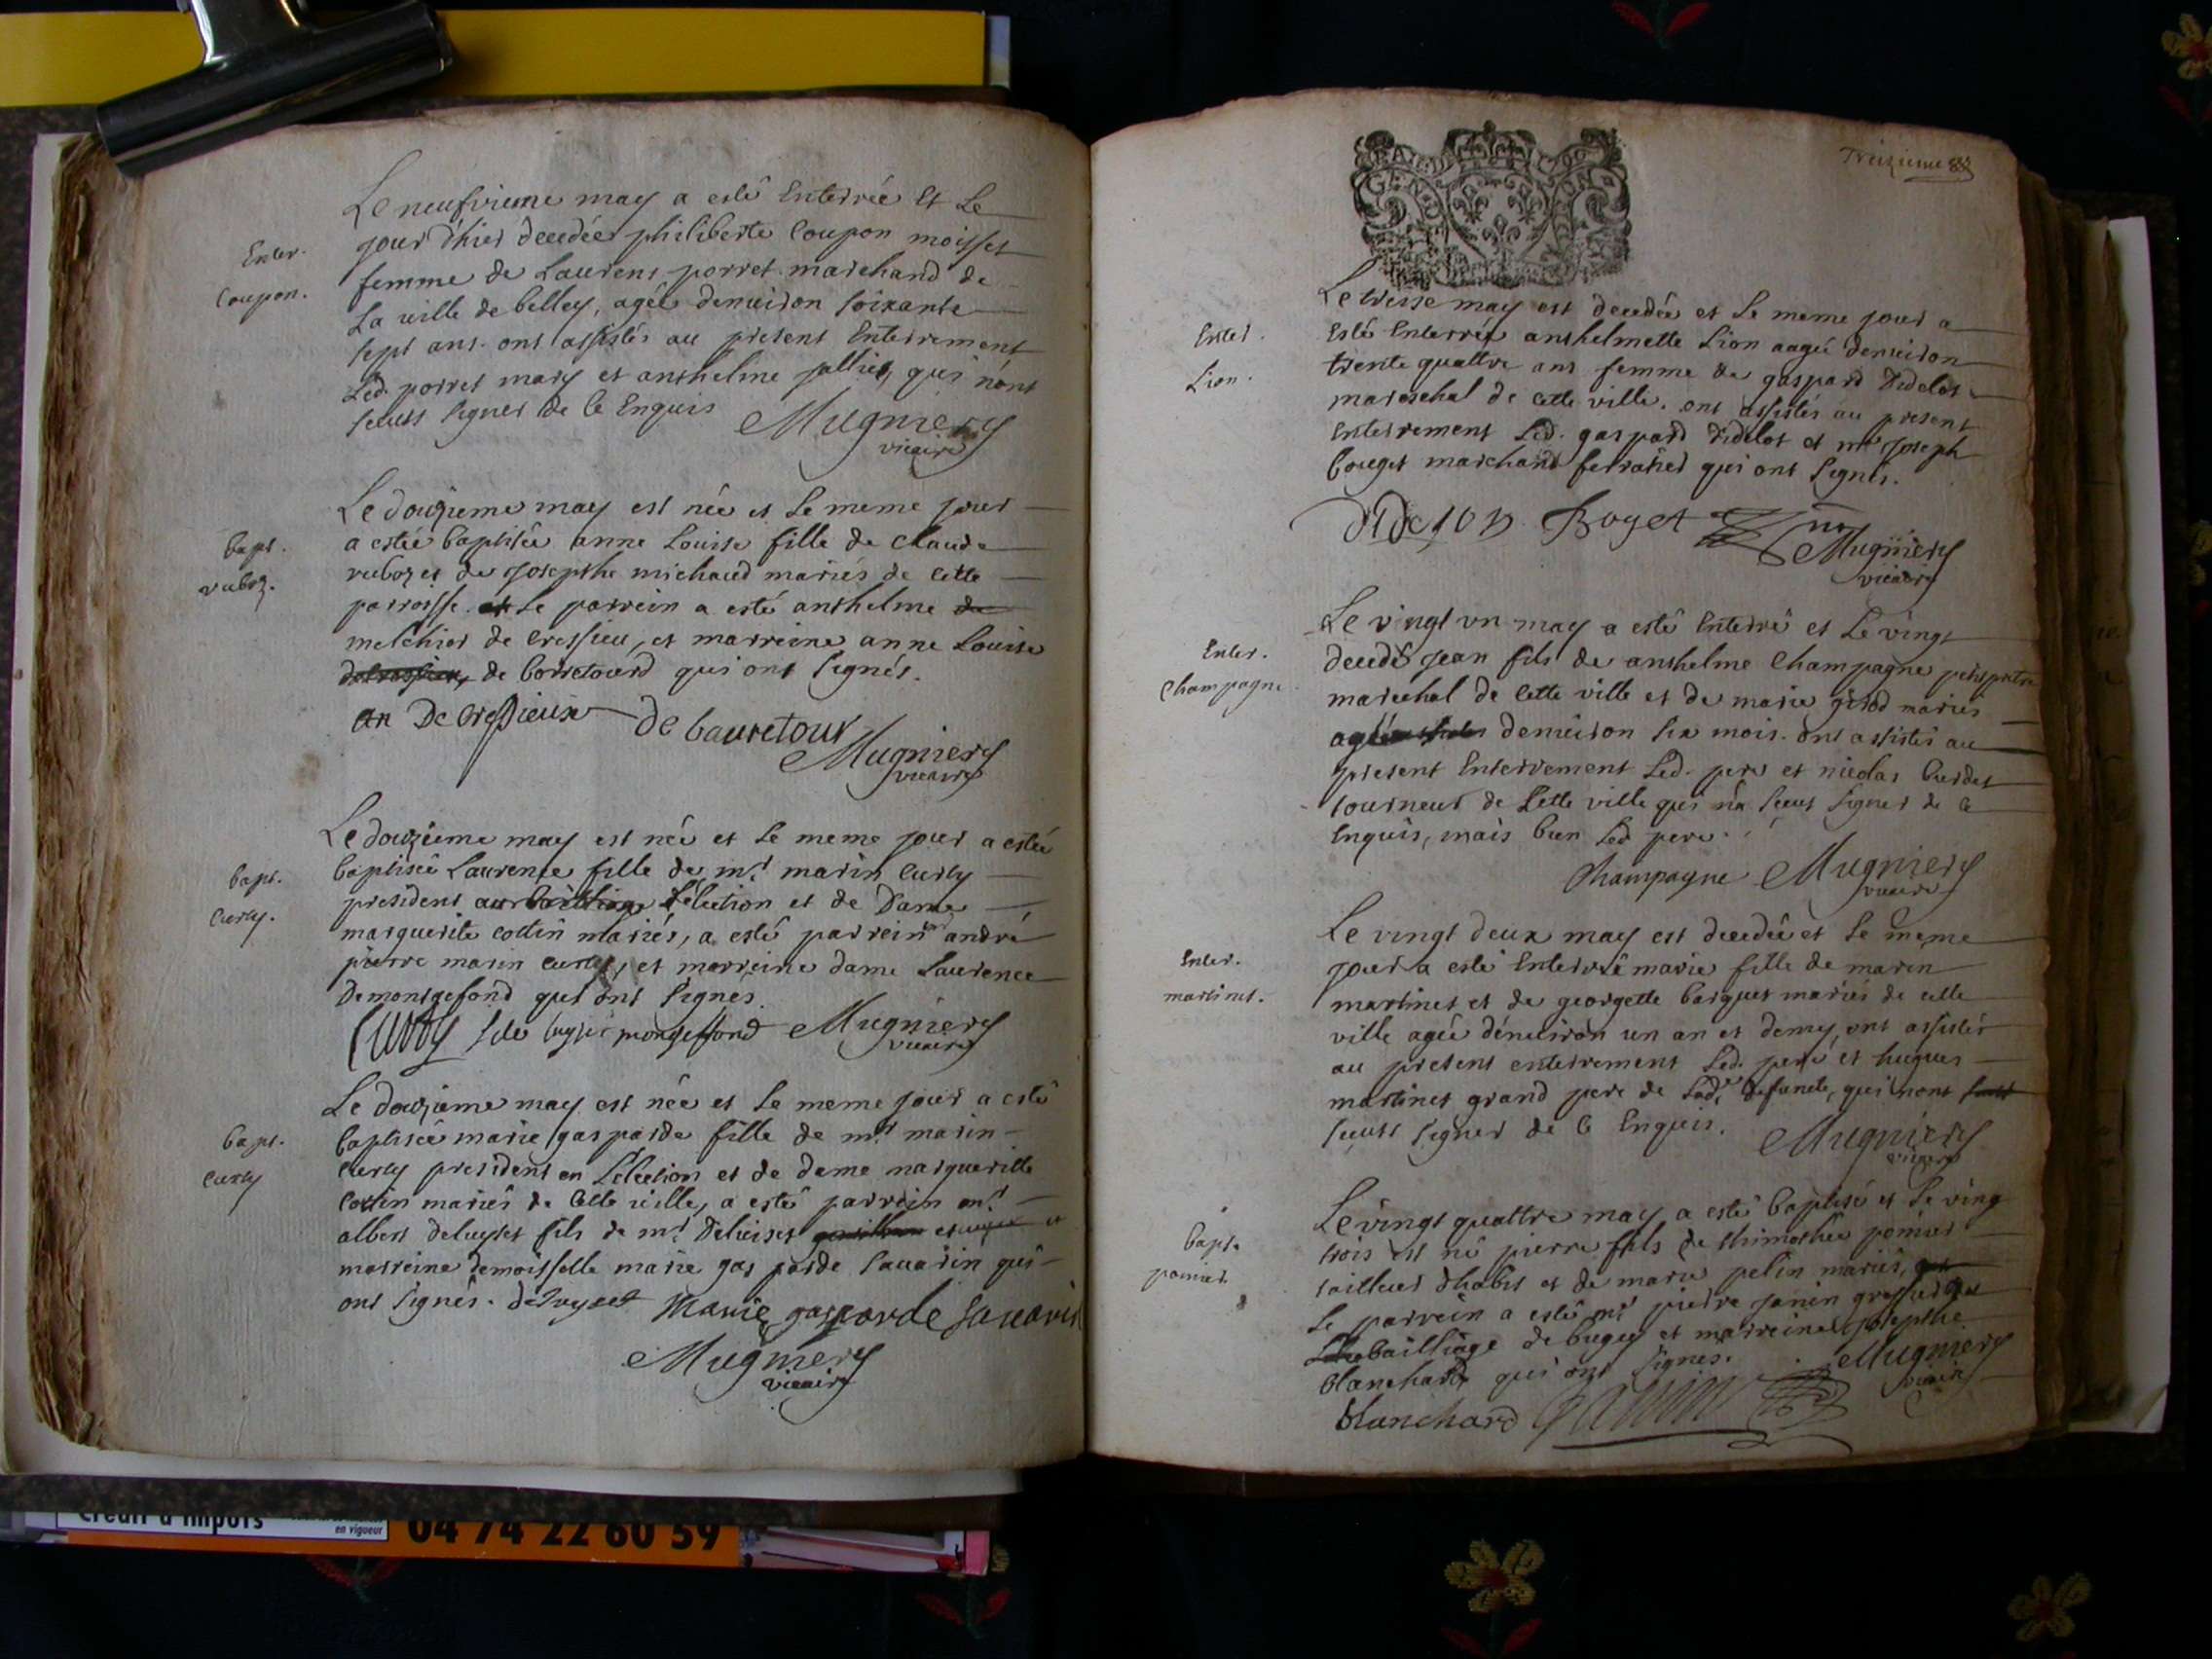 Le neufvieme may a esté Enterrée Et Le
Enter. jour d'hier decedée philiberte Coupon moisset
Coupon. femme de Laurens porret marchand de
La ville de belley, agée denuiron soixante
sept ans. ont assistés au present Enterrement
Led. porret mary et anthelme jallier, qui n'ont
sceuts signer de ce Enquis Mugniery
vicaire
Le douzieme may est née et le meme jour
bapt. a estée baptisée anne Louise fille de Claude
vuboz. vuboz et de Josepthe michaud mariés de cette
parroisse. Le parrein a esté anthelme
melchior de Cressieu, et marreine anne Louise
de borretourd qui ont signés.
an De Cressieux de bauretour Mugniery
vicaire
Le douzieme may est née et le meme jour a estée
bapt. baptisée Laurence fille de mr marin Curty
Curty. president Election et de Dame
marguerite cottin mariés, a esté parrein andré
pierre marin Curty, et marreine dame Laurence
Demontgefond qui ont signés.
Curty montgeffond Mugniery
vicaire
Le douzieme may est née et le meme jour a esté
bapt. baptisée marie gasparde fille de mr marin
Curty Curty president en Lelection et de dame margueritte
Cottin mariés de cette ville, a esté parrein mr
albert deluyset fils de mr Deluiset et
marreine demoisselle marie gasparde sauarin qui
ont signés. deluyset Marie gasparde Sauarin
Mugniery
vicaire
Treizieme
GEN
Le tresse may est decedée et le meme jour a
Enter. Esté Enterrée anthelmette Lion aagée denuiron
Lion. trente quattre ans femme de gaspard didelot
mareschal de cette ville. ont assistés au present
Enterrement Led. gaspard didelot et mr Joseph
bouget marchand ferratier qui ont signés.
didelot Boget Mugniery
vicaire
Le vingt un may a esté Enterré et Le vingt
Enter. decedé Jean fils de anthelme Champagne
Champagne. marechal de cette ville et de marie girod mariés
agé denuiron six mois. ont assistés au
present Enterrement Led. pere et nicolas burdet
tourneur de Cette ville qui n'a sceut signer de ce
Enquis, mais bien Led pere.
Champagne Mugniery
vicaire
Le vingt deux may est decedée et le meme
Enter. jour a esté Enterrée marie fille de marin
martinet. martinet et de georgette barquet mariés de cette
ville agée denuiron un an et demy, ont assistés
au present enterrement Led. pere et hugues
martinet grand pere de Lade defuncte, qui n'ont
sceuts signer de ce Enquis. Mugniery
vicaire
Le vingt quattre may a esté baptisé et Le ving
bapt. trois est né pierre fils de thimothée pomier
pomier. tailleur d'habit et de marie pelin mariés,
Le parrein a esté mr pierre Janin greffier
bailliage de bugey et marreine Josepthe
blanchard qui ont signés. Mugniery
vicaire
blanchard Janin
Crédit d'impôts
en vigueur
04 74 22 60 59